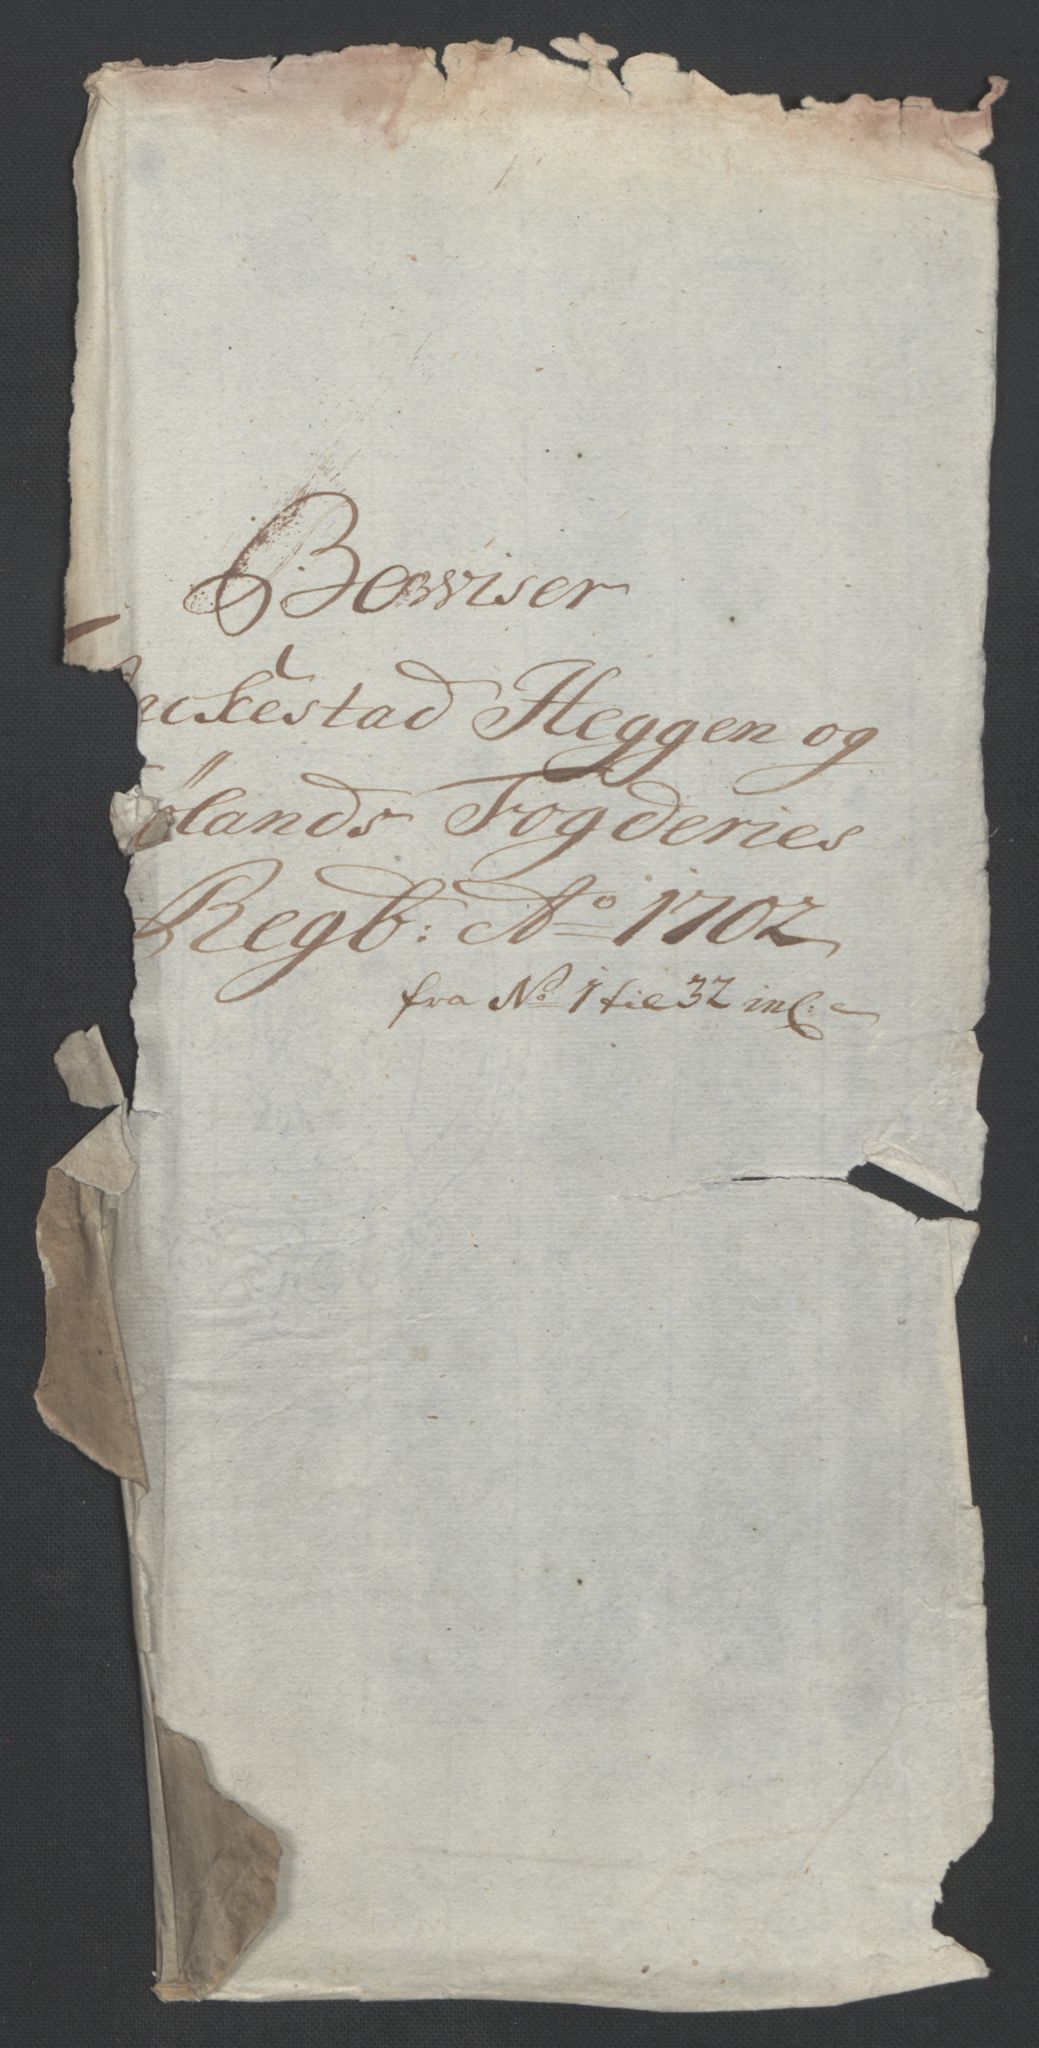 Bewiser
uckestad Heggen og
ølands Fogderies
Regb: Ao 1702
fra No 1 til 32 incl: